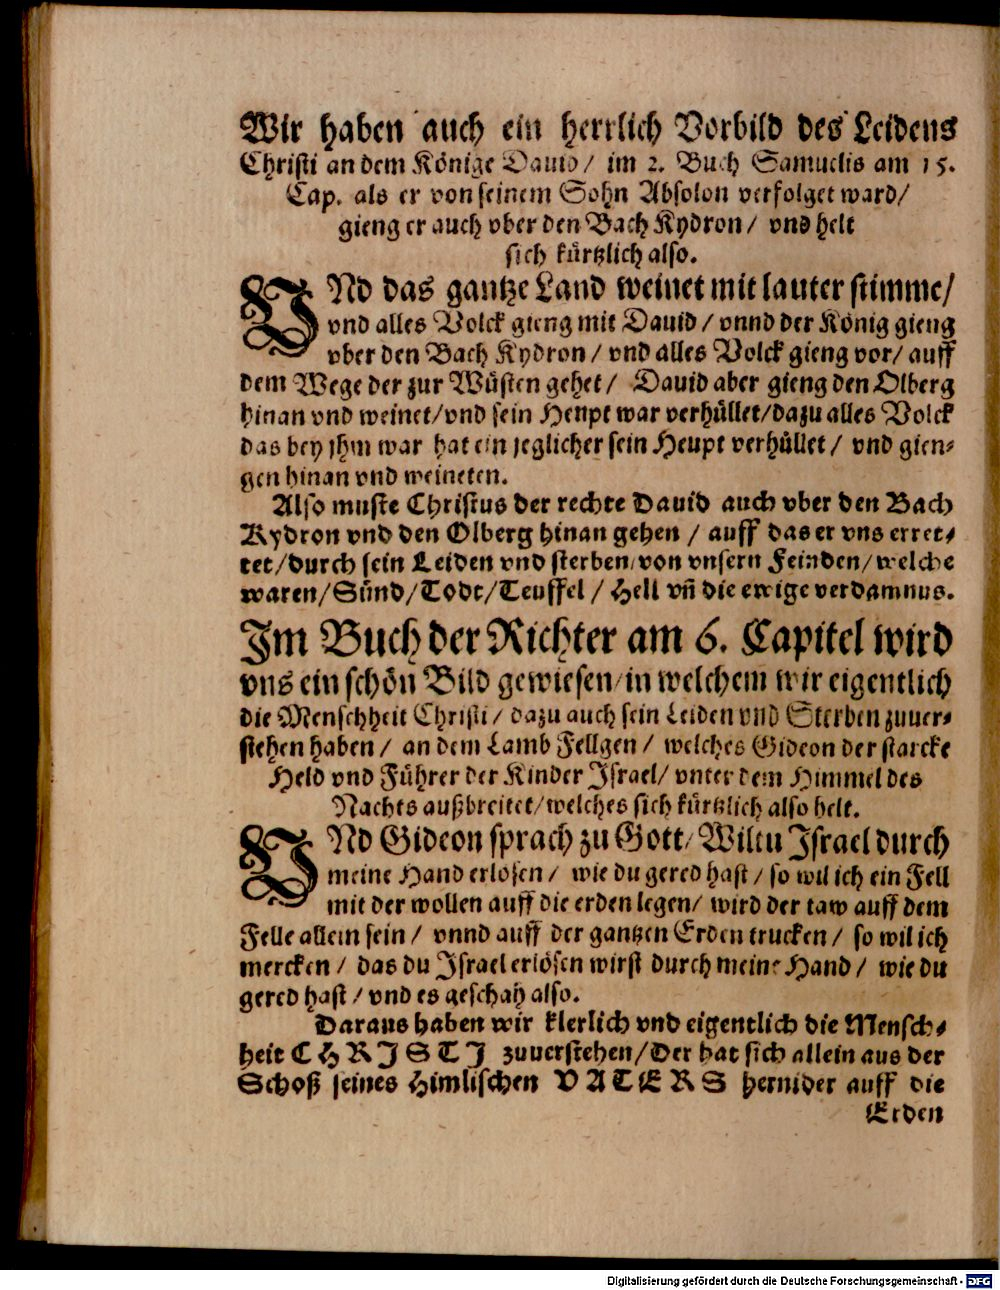 Wir haben auch ein herrlich Vorbild des Leidens
Christi an dem Könige Dauid/ im 2. Buch Samuelis am 15.
Cap. als er von seinem Sohn Absolon verfolget ward/
gieng er auch vber den Bach Kydron/ vnd helt
sich kürtzlich also.
VNd das gantze Land weinet mit lauter stimme/
vnd alles Volck gieng mit Dauid/ vnnd der König gieng
vber den Bach Kydron/ vnd alles Volck gieng vor/ auff
dem Wege der zur Wüsten gehet/ Dauid aber gieng den Olberg
hinan vnd weinet/vnd sein Heupt war verhüllet/dazu alles Volck
das bey jhm war hat ein jeglicher sein Heupt verhüllet/ vnd gien-
gen hinan vnd weineten.
Also muste Christus der rechte Dauid auch vber den Bach
Kydron vnd den Olberg hinan gehen / auff das er vns erret-
tet/durch sein Leiden vnd sterben/von vnsern Feinden/welche
waren/Sünd/Todt/Teuffel / Hell vñ die ewige verdamnus.
Im Buch der Richter am 6. Capitel wird
vns ein schön Bild gewiesen/in welchem wir eigentlich
die Menschheit Christi/ dazu auch sein Leiden vnd Sterben zuuer-
stehen haben/ an dem Lamb Fellgen/ welches Gideon der starcke
Held vnd Führer der Kinder Israel/ vnter dem Himmel des
Nachts außbreitet/welches sich kürtzlich also helt.
VNd Gideon sprach zu Gott/Wiltu Israel durch
meine Hand erlösen/ wie du gered hast/ so wil ich ein Fell
mit der wollen auff die erden legen/ wird der taw auff dem
Felle allein sein/ vnnd auff der gantzen Erden trucken/ so wil ich
mercken/ das du Israel erlösen wirst durch meine Hand/ wie du
gered hast/ vnd es geschah also.
Daraus haben wir klerlich vnd eigentlich die Mensch-
heit CHRISTI zuuerstehen/Der hat sich allein aus der
Schoß seines Himlischen VATERS hernider auff die
Erden
Digitalisierung gefördert durch die Deutsche Forschungsgemeinschaft - DFG